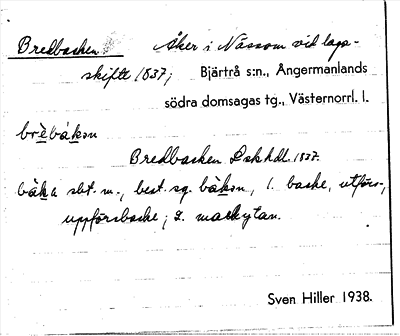 Bredbacken Åker i Nässom vid laga-
skifte 1837; Bjärtrå s:n., Ångermanlands
södra domsagas tg., Västernorrl. l.
brèbákən
Bredbacken Lskhdl. 1837.
bàka sbt. m., best. sg. bàkən, 1. backe, utförs-,
uppförsbacke; 2. markytan.
Sven Hiller 1938.